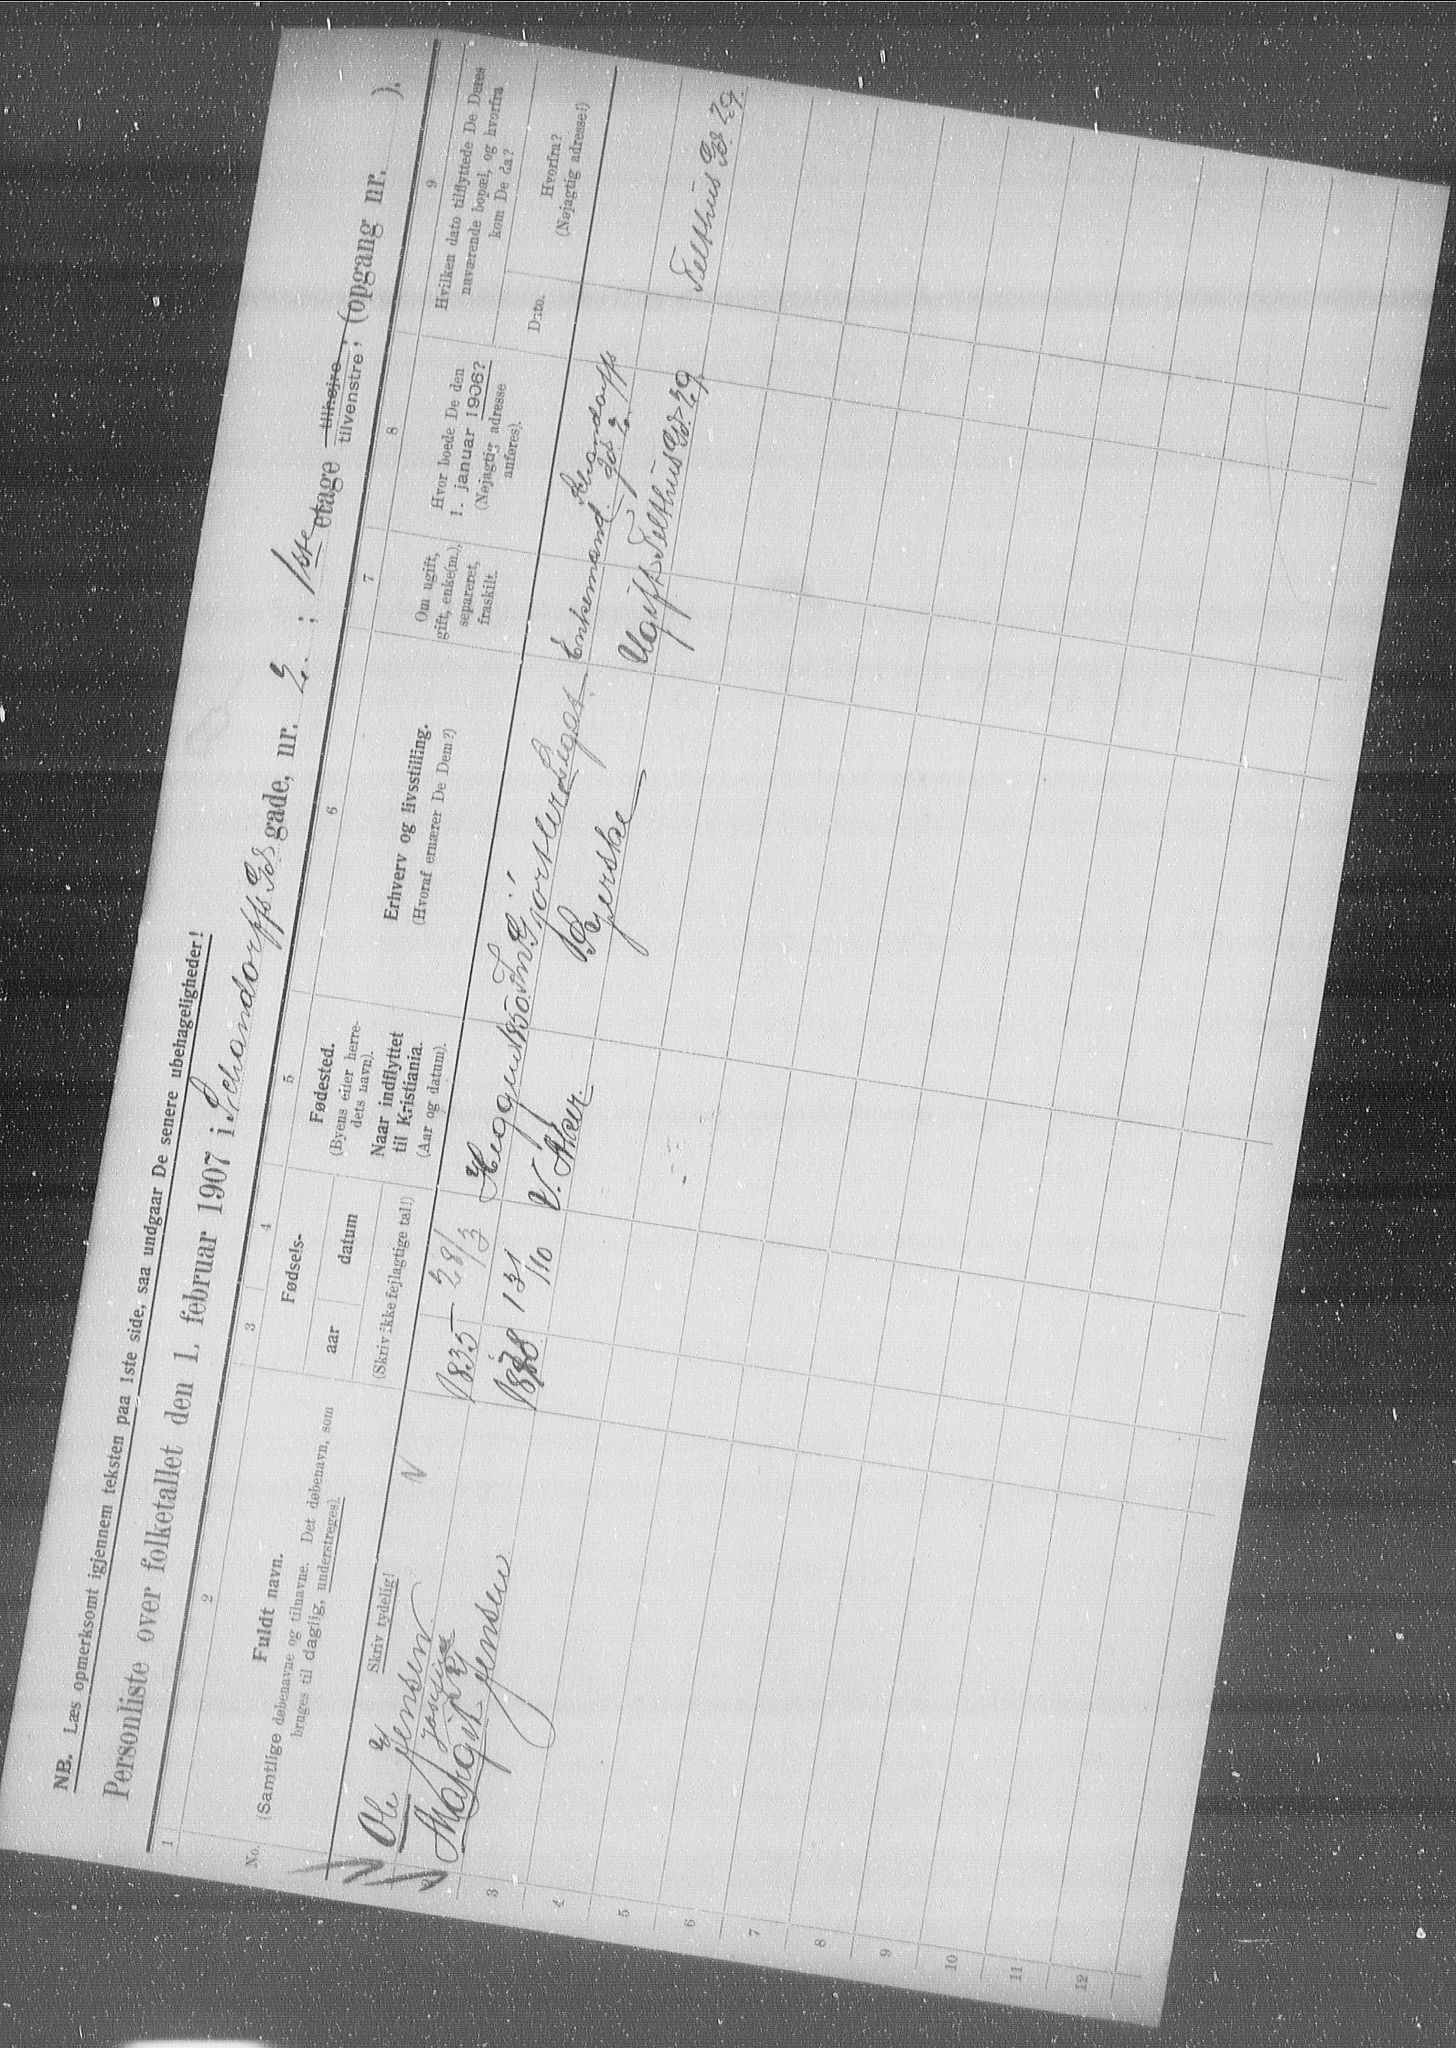 NB. Læs opmerksomt igjennem teksten paa 1ste side, saa undgaar De senere ubehageligheder!
Personliste over folketallet den 1. februar 1907 i Schandorffs Gd. gade, nr. 2. ; 1ste etage tilhøire, tilvenstre, (opgang nr. ).
1
2
3
4
5
6
7
8
9
No.
Fuldt navn.
(Samtlige døbenavne og tilnavne. Det døbenavn, som
bruges til daglig, understreges).
Skriv tydelig!
Fødsels-
aar
datum
(Skriv ikke fejlagtige tal!)
Fødested.
(Byens eller herre-
dets navn).
Naar indflyttet
til Kristiania.
(Aar og datum).
Erhverv og livsstilling.
(Hvoraf ernærer De Dem?)
Om ugift,
gift, enke(m.),
separeret,
fraskilt.
Hvor boede De den
1. januar 1906?
(Nøjagtig adresse
anføres).
Hvilken dato tilflyttede De Deres
nuværende bopæl, og hvorfra
kom De da?
Dato.
Hvorfra?
(Nøjagtig adresse!)
Ole Jensen 1835 28/3 Enkemand. Schandorffs gd. 2.
Margit Jensen 1878 13/10 V. Aker Syerske Ugift Telthus Gd. 29 Telthus Gd. 29.
3
4
5
6
7
8
9
10
11
12